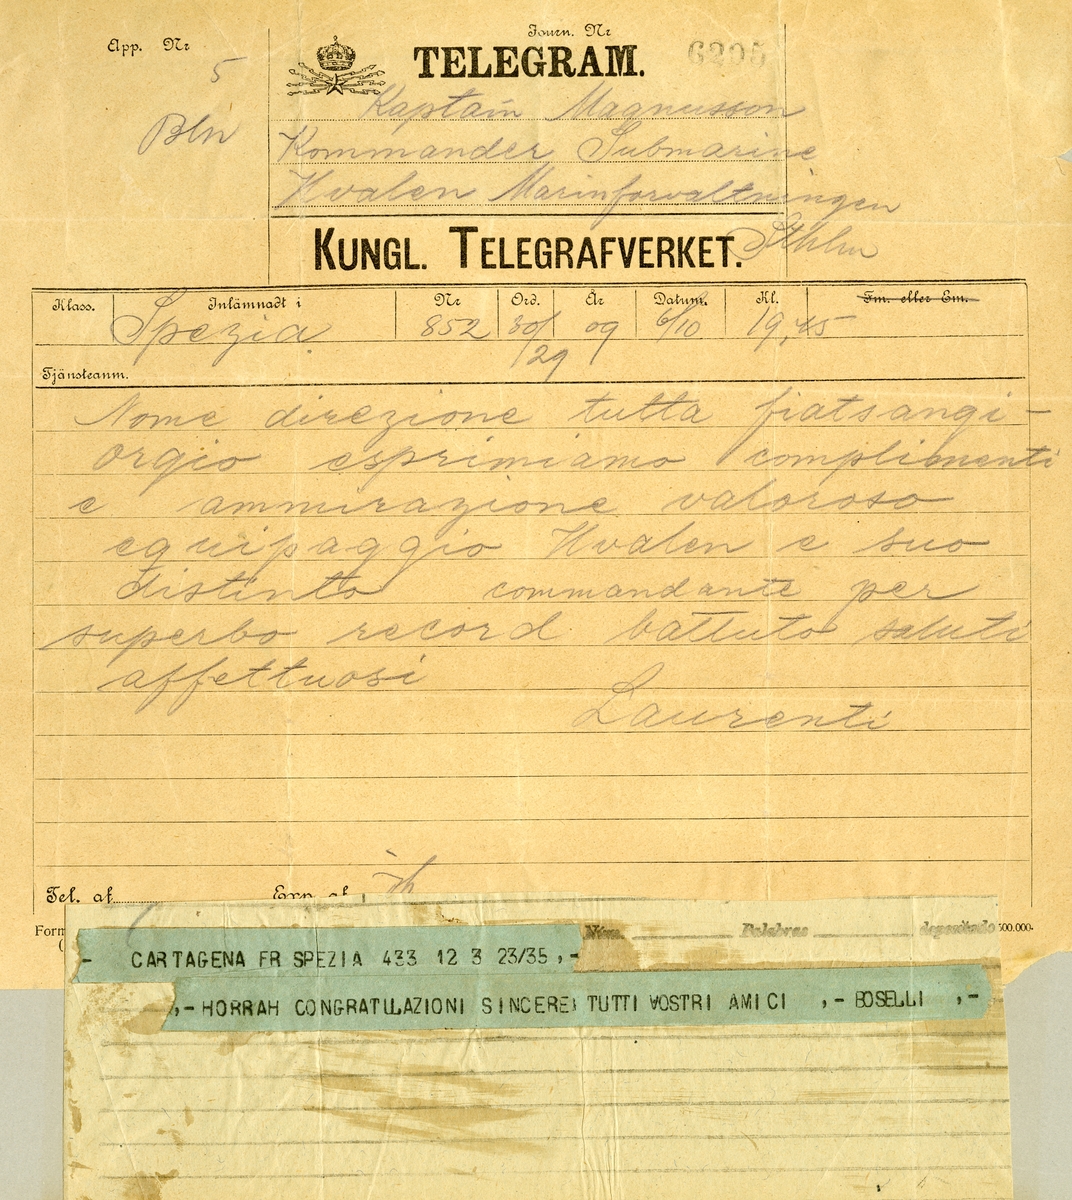 App. Nr
Journ. Nr
5
TELEGRAM.
6295
Bln
Kaptain Magnusson
Kommander Submarine
Hvalen Marinforvaltningen
Sthlm
KUNGL. TELEGRAFVERKET.
Klass. Inlämnadt i Nr Ord. År Datum. Kl. Fm. eller Em.
Spezia 852 30/29 09 6/10 19,45
Tjänsteanm.
Nome direzione tutta fiatsangi-
orgio esprimiamo complimenti
e ammirazione valoroso
equipaggio Hvalen e suo
distinto commandante per
superbo record battuto saluti
affettuosi
Laurenti
Tel. af
Exp. af
Form
500.000.
Núm. Palabras depositado
- CARTAGENA FR SPEZIA 433 12 3 23/35 ,-
,- HORRAH CONGRATULAZIONI SINCERE TUTTI VOSTRI AMICI ,- BOSELLI ,-